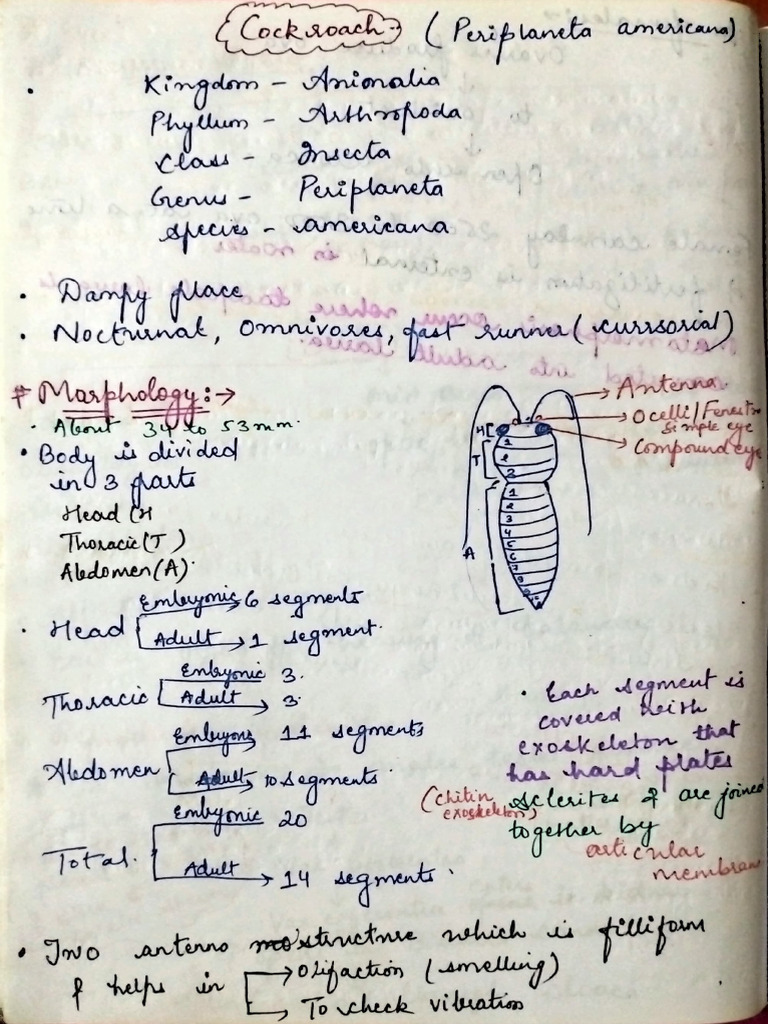 Cockroach- (Periplaneta americana)
Kingdom - Anionalia
Phyllum - Arthropoda
Class - Insecta
Genus - Periplaneta
Species - americana
• Dampy place
• Nocturnal, Omnivores, fast runner (currsorial)
# Morphology :→
• About 34 to 53mm.
• Body is divided
in 3 parts
Head (H
Thoracic (T)
Abdomen (A).
Antenna
Ocelli/Fenestra
Simple eye
Compound eye
H
T
A
1
2
3
1
2
3
4
5
6
7
8
9
10
• Head Embryonic → 6 segments
Adult → 1 segment.
Thoracic Embryonic 3.
Adult → 3.
Abdomen Embryons 11 segments
Adult → 10 segments.
Total. Embryonic 20
Adult → 14 segments.
• Each segment is
covered with
exoskeleton that
has hard plates
(chitin exoskeleton) sclerites & are joined
together by
articular
membran
• Two antenno structure which is filliform
& helps in → Olifaction (smelling)
→ To check vibration